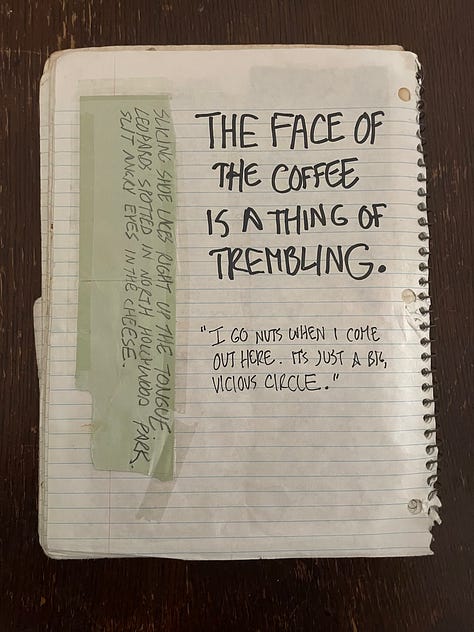 SLICING SHOE LACES RIGHT UP THE TONGUE.
LEOPARDS SPOTTED IN NORTH HOLLYWOOD PARK.
SLIT ANGRY EYES IN THE CHEESE.
THE FACE OF
THE COFFEE
IS A THING OF
TREMBLING.
"I GO NUTS WHEN I COME
OUT HERE. IT'S JUST A BIG,
VICIOUS CIRCLE."